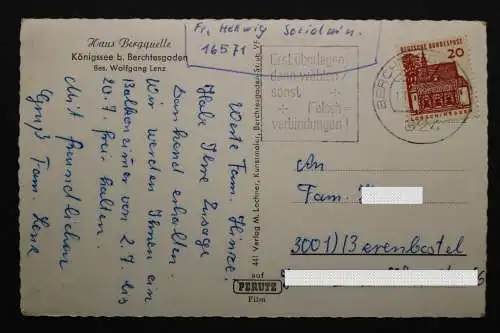 Haus Bergquelle
Königssee b. Berchtesgaden
Bes. Wolfgang Lenz
Fr. Hellwig Socialmin.
16571
Werte Fam. Hinze.
Habe Ihre Zusage
dankend erhalten.
Wir werden Ihnen ein
Balkonzimmer von 2.7. bis
20.7. frei halten.
Mit freundlichem
Gruß Fam. Lenz
411 Verlag M. Lochner, Kunstmaler, Berchtesgaden
auf
PERUTZ
Film
Erst überlegen,
dann wählen
sonst
Falsch-
verbindungen!
BERCH
DEUTSCHE BUNDESPOST
20
An
Fam.
3001) Berenbostel